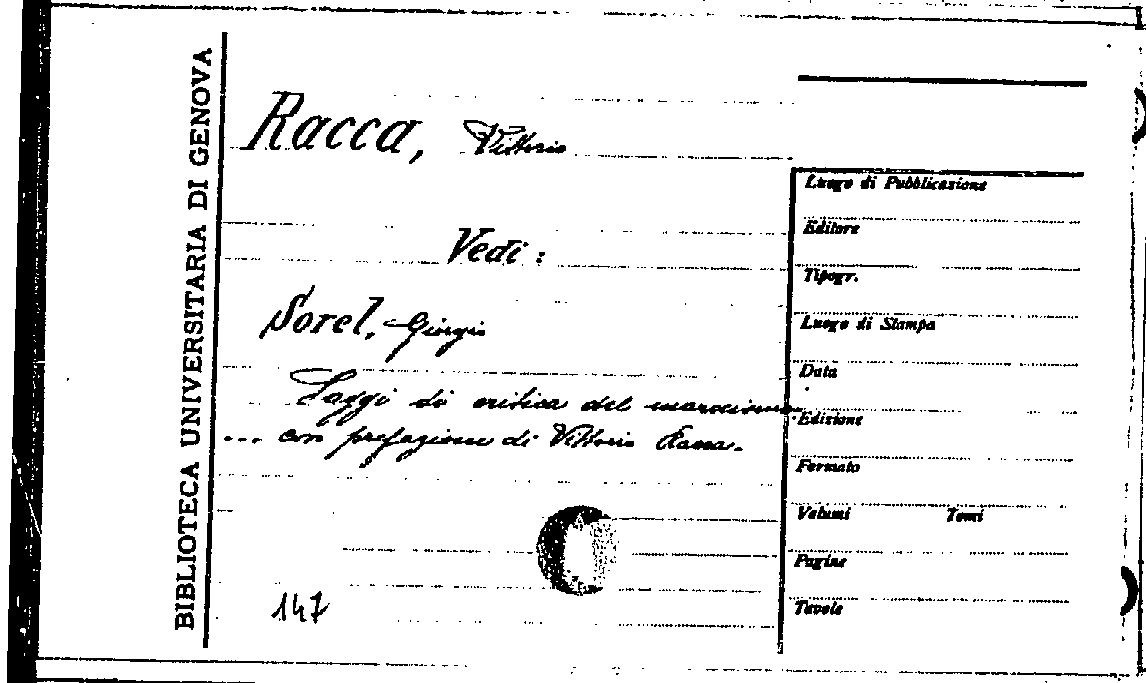 BIBLIOTECA UNIVERSITARIA DI GENOVA
Racca, Vittorio
Vedi :
Sorel, Giorgio
Saggi di critica del marxismo
... con prefazione di Vittorio Racca.
147
Luogo di Pubblicazione
Editore
Tipogr.
Luogo di Stampa
Data
Edizione
Formato
Volumi Tomi
Pagine
Tavole